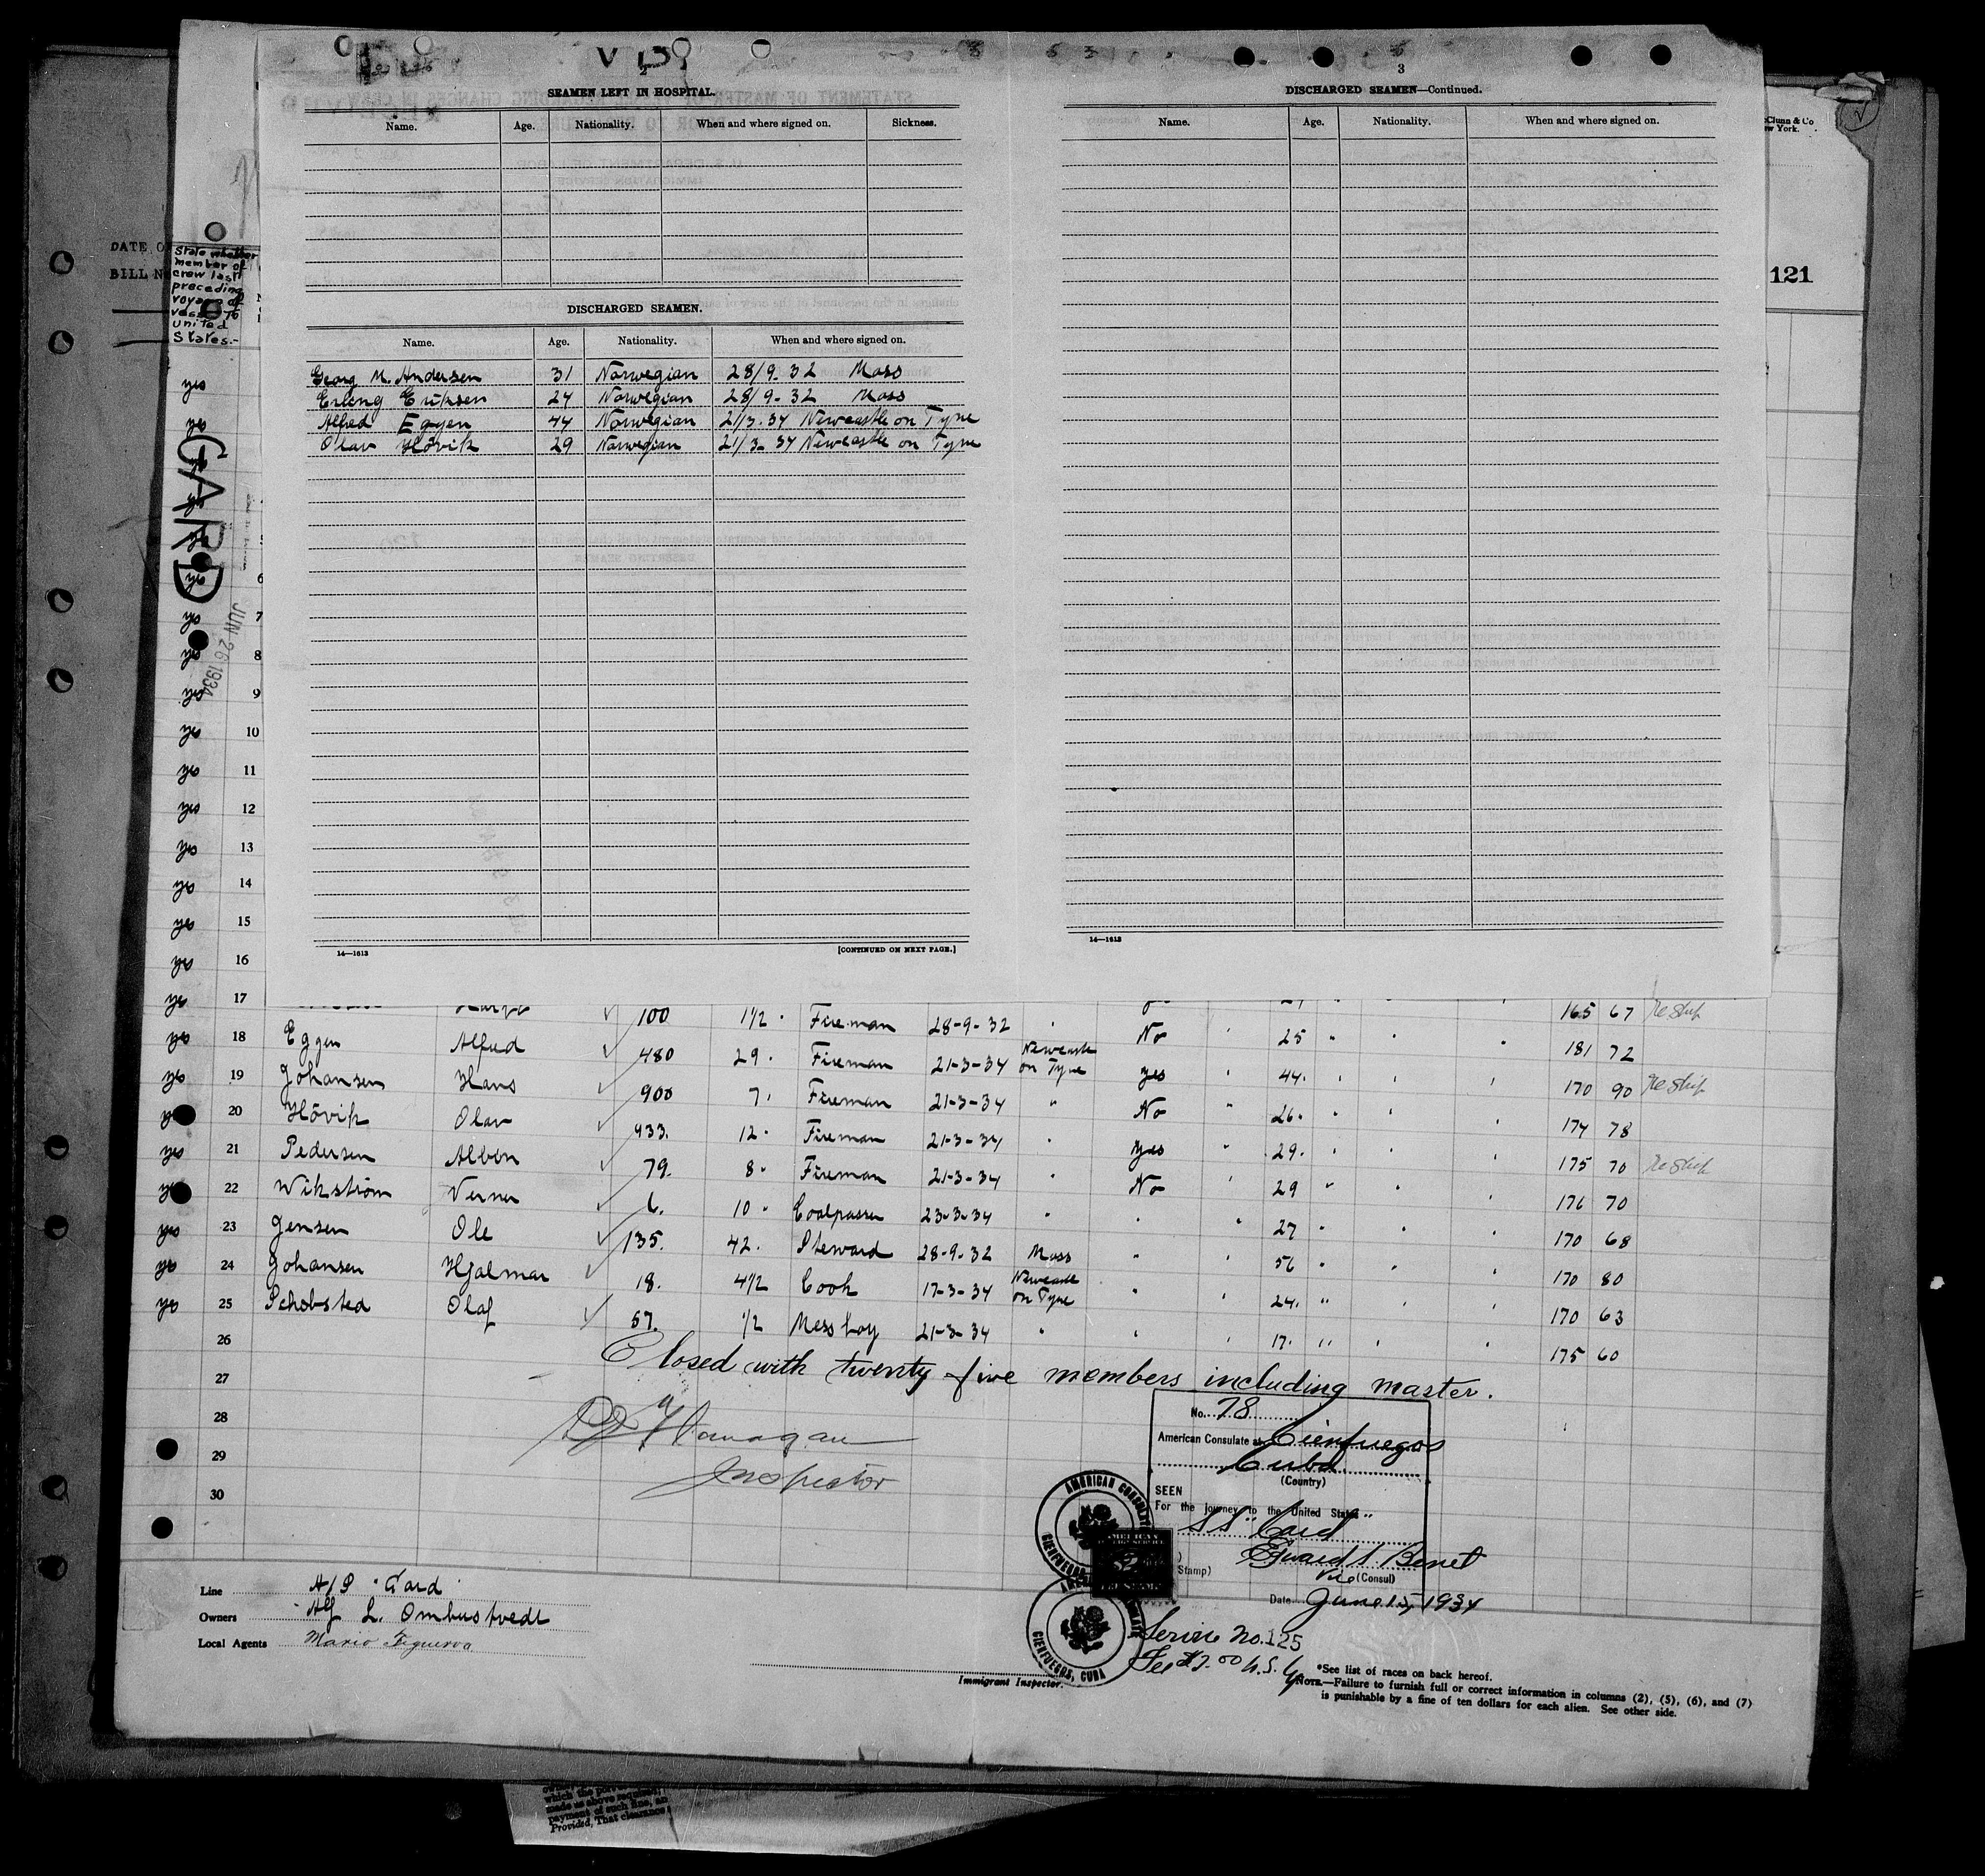 2
SEAMEN LEFT IN HOSPITAL.
Name. Age. Nationality. When and where signed on. Sickness.
DISCHARGED SEAMEN.
Name. Age. Nationality. When and where signed on.
Georg M. Andersen 31 Norwegian 28/9-32 Moss
Erling Eriksen 24 Norwegian 28/9-32 Moss
Alfred Eggen 44 Norwegian 21/3-34 Newcastle on Tyne
Olav Hövik 29 Norwegian 21/3-34 Newcastle on Tyne
14—1613 [CONTINUED ON NEXT PAGE.]
3
DISCHARGED SEAMEN—Continued.
Name. Age. Nationality. When and where signed on.
14—1613
Clunn & Co
ew York.
121
DATE O
BILL N
State whether
member of
crew last
preceding
voyage of
vessel to
United
States.-
GARD
JUN 26 1934
yes
yes
yes
yes 6
yes 7
yes 8
yes 9
yes 10
yes 11
yes 12
yes 13
yes 14
yes 15
yes 16
yes 17 100 1½ Fireman 28-9-32 " No " 25 " " " 165 67 Reship
yes 18 Eggen Alfred ✓ 480 29 Fireman 21-3-34 Newcastle on Tyne yes " 44 " " " 181 72
yes 19 Johansen Hans ✓ 900 7 Fireman 21-3-34 " No " 26 " " " 170 90 Reship
20 Hövik Olav ✓ 933 12 Fireman 21-3-34 " yes " 29 " " " 174 78
yes 21 Pedersen Albin ✓ 79 8 Fireman 21-3-34 " No " 29 " " " 175 70 Reship
yes 22 Wikström Verner ✓ 6 10 Coalpasser 23-3-34 " " " 27 " " " 176 70
yes 23 Jensen Ole ✓ 135 42 Steward 28-9-32 Moss " " 56 " " " 170 68
yes 24 Johansen Hjalmar ✓ 18 4½ Cook 17-3-34 Newcastle on Tyne " " 24 " " " 170 80
yes 25 Schobsted Olaf ✓ 57 ½ Mess boy 21-3-34 " " " 17 " " " 170 63
26 175 60
Closed with twenty five members including master.
27
28
Flanagan
29
Inspector
30
No. 78
American Consulate at Cienfuegos
Cuba
(Country)
SEEN
For the journey to the United States
SS "Gard"
Stamp)
Vice (Consul)
Date June 15, 1934
AMERICAN CONSULATE
CIENFUEGOS, CUBA
Service No. 125
Fee $2.00 U.S. Cy
Line A/S "Gard"
Owners Alf L. Ombustvedt
Local Agents Mario Figueroa
Immigrant Inspector.
*See list of races on back hereof.
NOTE.—Failure to furnish full or correct information in columns (2), (5), (6), and (7)
is punishable by a fine of ten dollars for each alien. See other side.
which the port
made as above required
payment of such fine, an
Provided, That clearance